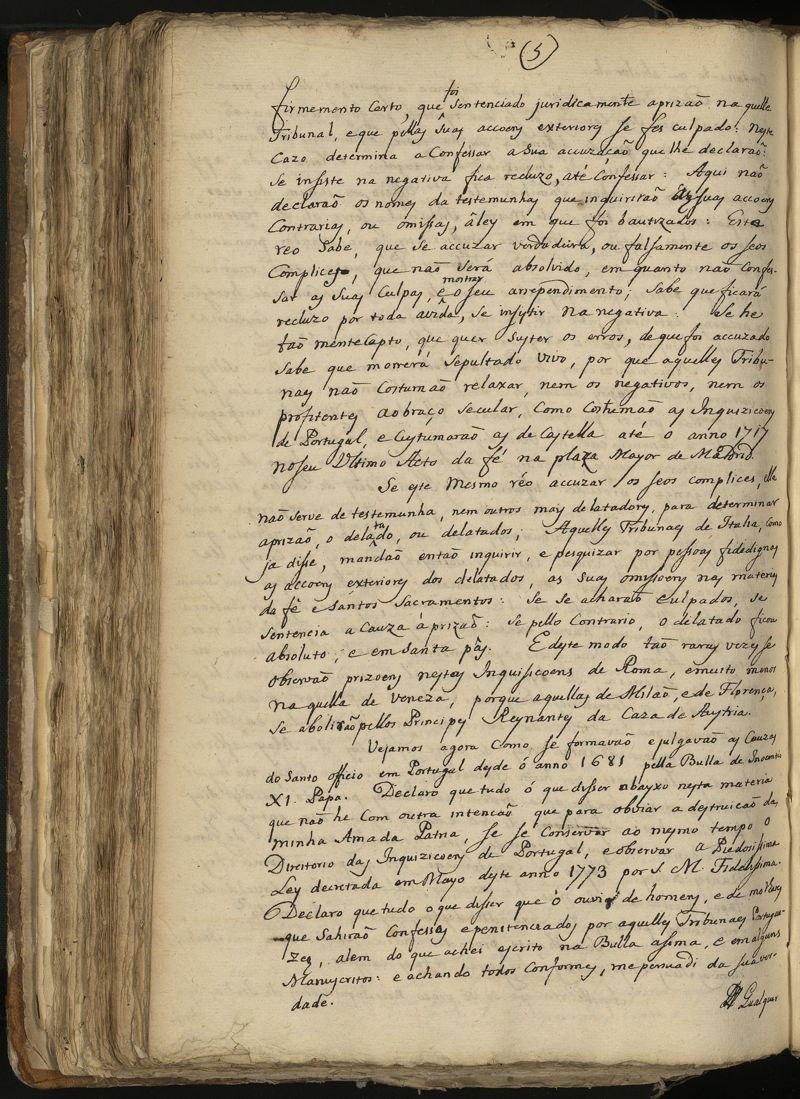 (5)
firmemente Certo, que foi Sentenciado juridicamente aprizaõ na quelle
Tribunal, e que pellas Suas accoens exteriores se fes culpado: Neste
Cazo determina a Confessar a Sua accuzaçaõ que lhe declaraõ:
Se insiste na negativa fica recluzo, até Confessar: Aqui naõ
declaraõ os nomes da testemunhas que inquiriraõ as suas accoens
Contrarias, ou omissas, âley em que foi bautizados: Este
reo Sabe, que se accuzar verdadeira, ou falsamente os seos
Complices, que naõ Será absolvido, em quanto naõ Confes-
sar as Suas Culpas, e mostrar o seu arrependimento; Sabe que ficará
recluzo por toda avida, se insystir na negativa: Se he
taõ mentecapto, que quer Suster os erros, de que foi accuzado
Sabe que morrerá Sepultado vivo, por que aquelles Tribu-
naes naõ Costumaõ relaxar, nem os negativos, nem os
profitentes ao braço Secular, Como Costumaõ as Inquizicoens
de Portugal, e Custumaraõ as de Castella até o anno 1717
no seu Ultimo Acto da fé na plaza Mayor de Madrid.
Se este mesmo réo accuzar os seos complices, elle
naõ serve de testemunha, nem outros mais delatadores, para determinar
aprizaõ, o delatado, ou delatados; Aquelles Tribunaes de Italia, Como
ja disse, mandaõ entaõ inquirir, e pesquizar por pessoas fidedignas
as accoens exteriores dos delatados, as Suas omissoens nas materias
da fê e Santos Sacramentos: Se se acharaõ Culpados, se
Sentencia a Cauza á prizaõ: Se pello Contrario, o delatado ficou
absoluto, e em Santa pâs. E deste modo taõ raras vezes se
observaõ prizoens nestes Inquisicoens de Roma, e muito menos
na quella de Veneza, porque aquellas de Milaõ e de Florença,
Se aboliraõ pellos Principes Reynantes da Caza de Austria.
Vejamos agora Como se formavaõ e julgavaõ as Cauzas
do Santo officio em Portugal desde ó anno 1681 pella Bulla de Inocentio
XI. Papa. Declaro que tudo ó que disser abayxo nesta materia
que naõ he Com outra intencaõ que para obviar a destruicaõ da
minha Amada Patria, se se Conservar ao mesmo tempo o
Directorio das Inquizicoens de Portugal, e observar a Piedosissima
Ley decretada em Mayo deste anno 1773 por S. M. Fidelissima.
Declaro que tudo o que disser que ó ouvi de homens, e de molheres
que Sahiraõ Confessos e penitenciados por aquelles Tribunaes Portugue-
zes, alem do que achei escrito na Bulla assima, e em alguns
Manuscritos: e achando todos Conformes, me persuadi da sua ver-
dade.
Qualquer